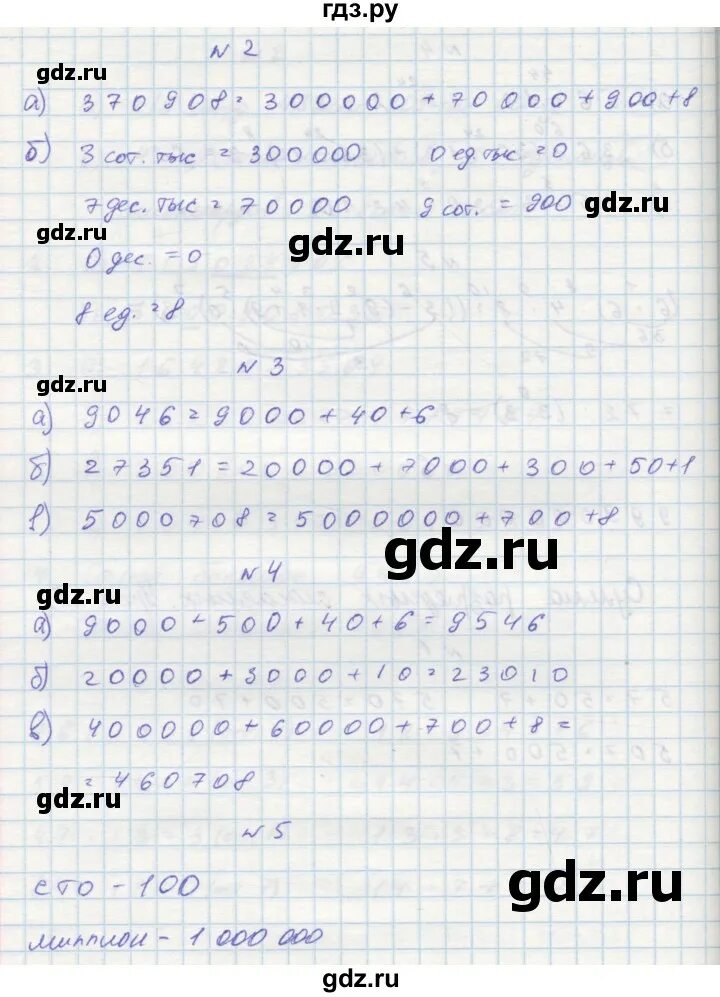 гдз.ру
N 2
gdz.ru
а) 370908 = 300000 + 70000 + 900 + 8
gdz.ru
б) 3 сот. тыс = 300000 0 ед. тыс. = 0
7 дес. тыс = 70000 9 сот. = 900 gdz.ru
gdz.ru
0 дес. = 0 gdz.ru
8 ед. = 8
N 3
gdz.ru
а) 9046 = 9000 + 40 + 6
б) 27351 = 20000 + 7000 + 300 + 50 + 1
в) 5000708 = 5000000 + 700 + 8
gdz.ru
N 4
gdz.ru
а) 9000 + 500 + 40 + 6 = 9546
б) 20000 + 3000 + 10 = 23010
в) 400000 + 60000 + 700 + 8 =
= 460708
gdz.ru
N 5
сто - 100 gdz.ru
миллион - 1 000 000
gdz.ru